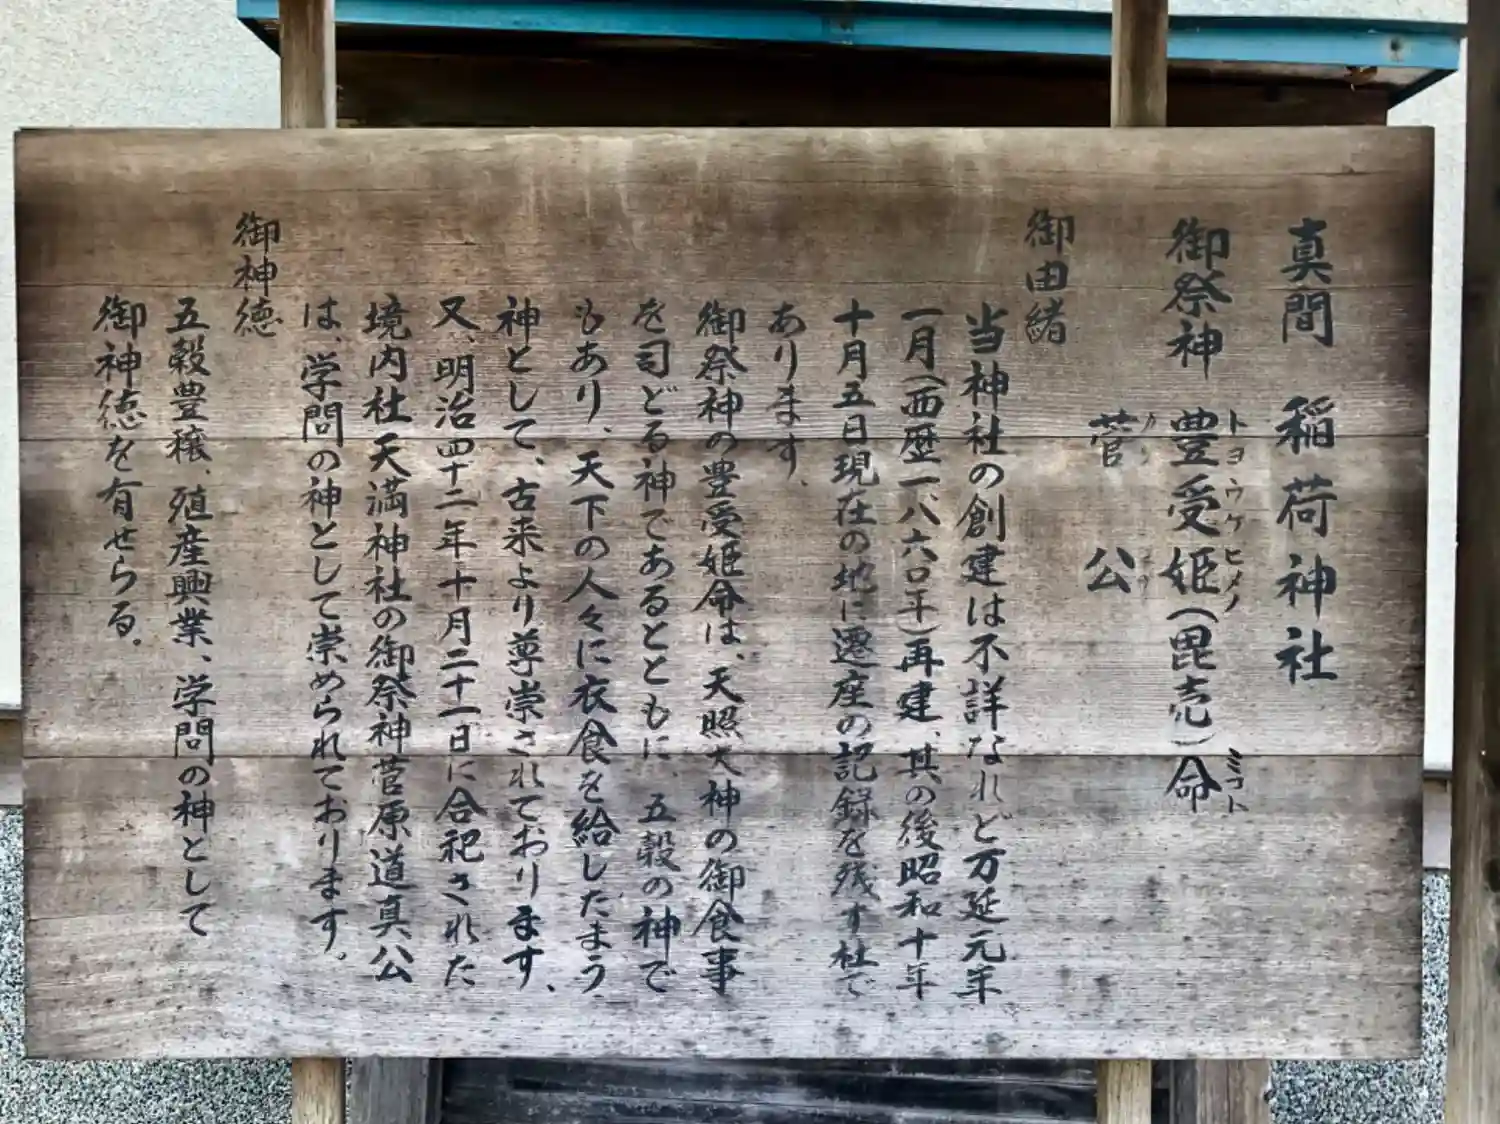 真間 稲荷神社
御祭神 豊受姫(毘売)命
トヨウケヒメノ ミコト
菅公
御由緒
当神社の創建は不詳なれど万延元年
一月(西歴一八六〇年)再建、其の後昭和十年
十月五日現在の地に遷座の記録を残す社で
あります。
御祭神の豊受姫命は、天照大神の御食事
を司どる神であるとともに 五穀の神で
もあり、天下の人々に衣食を給したまう
神として、古来より尊崇されております、
又、明治四十二年十月二十一日に合祀された
境内社天満神社の御祭神菅原道真公
は、学問の神として崇められております。
御神徳
五穀豊穣、殖産興業、学問の神として
御神徳を有せらる。